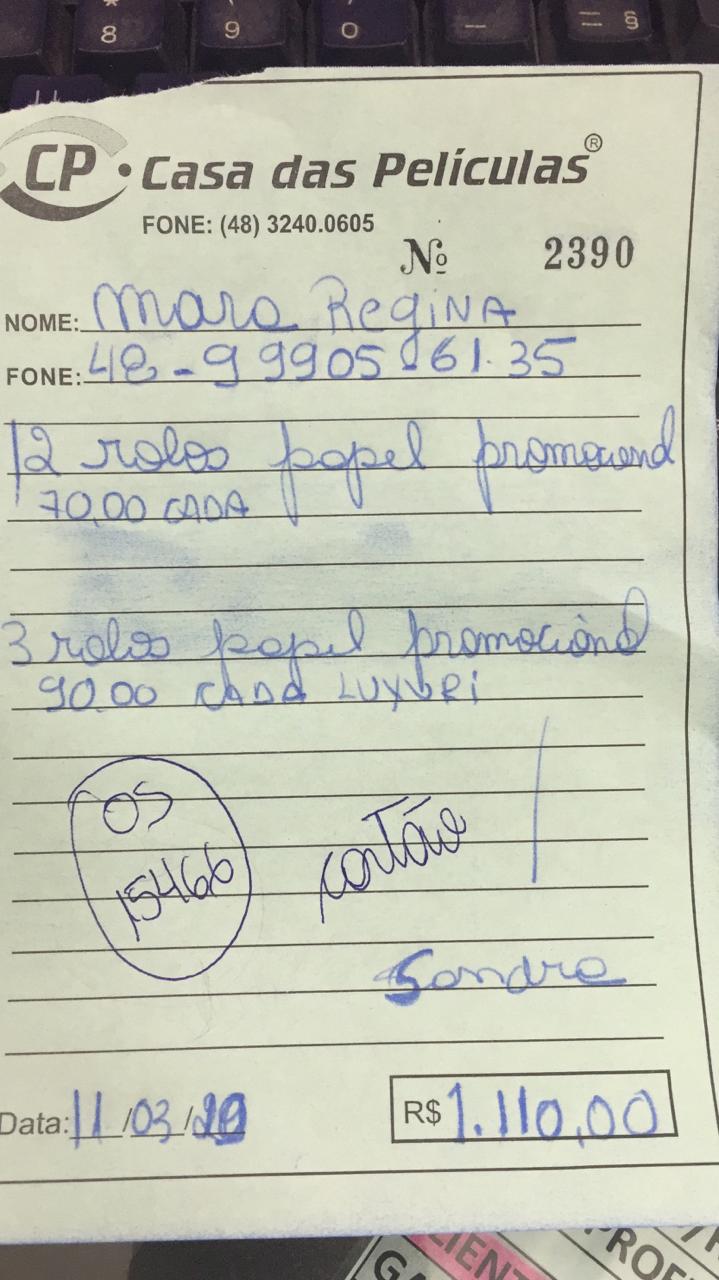 * 8
9
0
—
= §
CP · Casa das Películas ®
FONE: (48) 3240.0605
Nº 2390
NOME: Mara Regina
FONE: 48-9 9905.61.35
12 rolos papel promocional
70,00 CADA
3 rolos papel promocional
90,00 CADA LUXURI
OS
15466
cartão
Sandra
Data: 11/03/
R$ 1.110,00